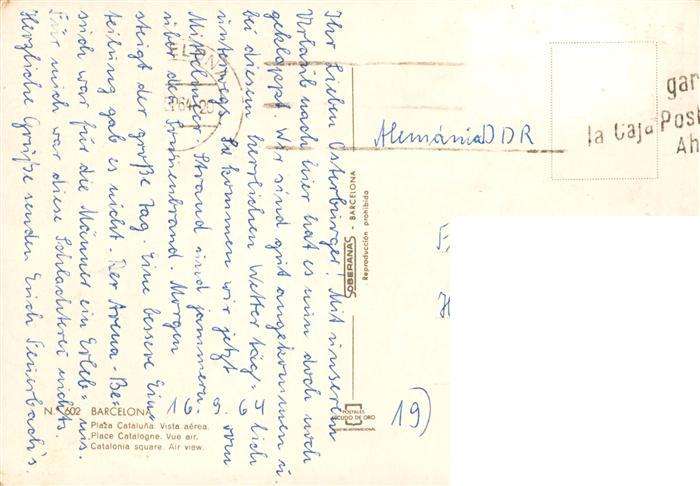 Ihr Lieben Osterburger! Mit unserem
Urlaub nach hier hat es nun doch noch
geklappt. Wir sind gut angekommen u.
bei diesem herrlichen Wetter täg-lich
unterwegs. Bekommen wir jetzt vom
Mittelmeer Strand und jammern
über den Sonnenbrand. Morgen
steigt der große Tag. Eine bessere Ein-
teilung gab es nicht. Der Arena-Be-
such war für die Männer ein Erleb-nis.
Für mich war diese Schlachterei nichts.
Herzliche Grüße senden Erich
16.9.64
19)
Alemánia DDR
gar
la Caja Post
Ah
64
SOBERANAS - BARCELONA
Reproducción prohibida
POSTALES
ESCUDO DE ORO
N. 602 BARCELONA
Plaza Cataluña. Vista aérea.
Place Catalogne. Vue air.
Catalonia square. Air view.